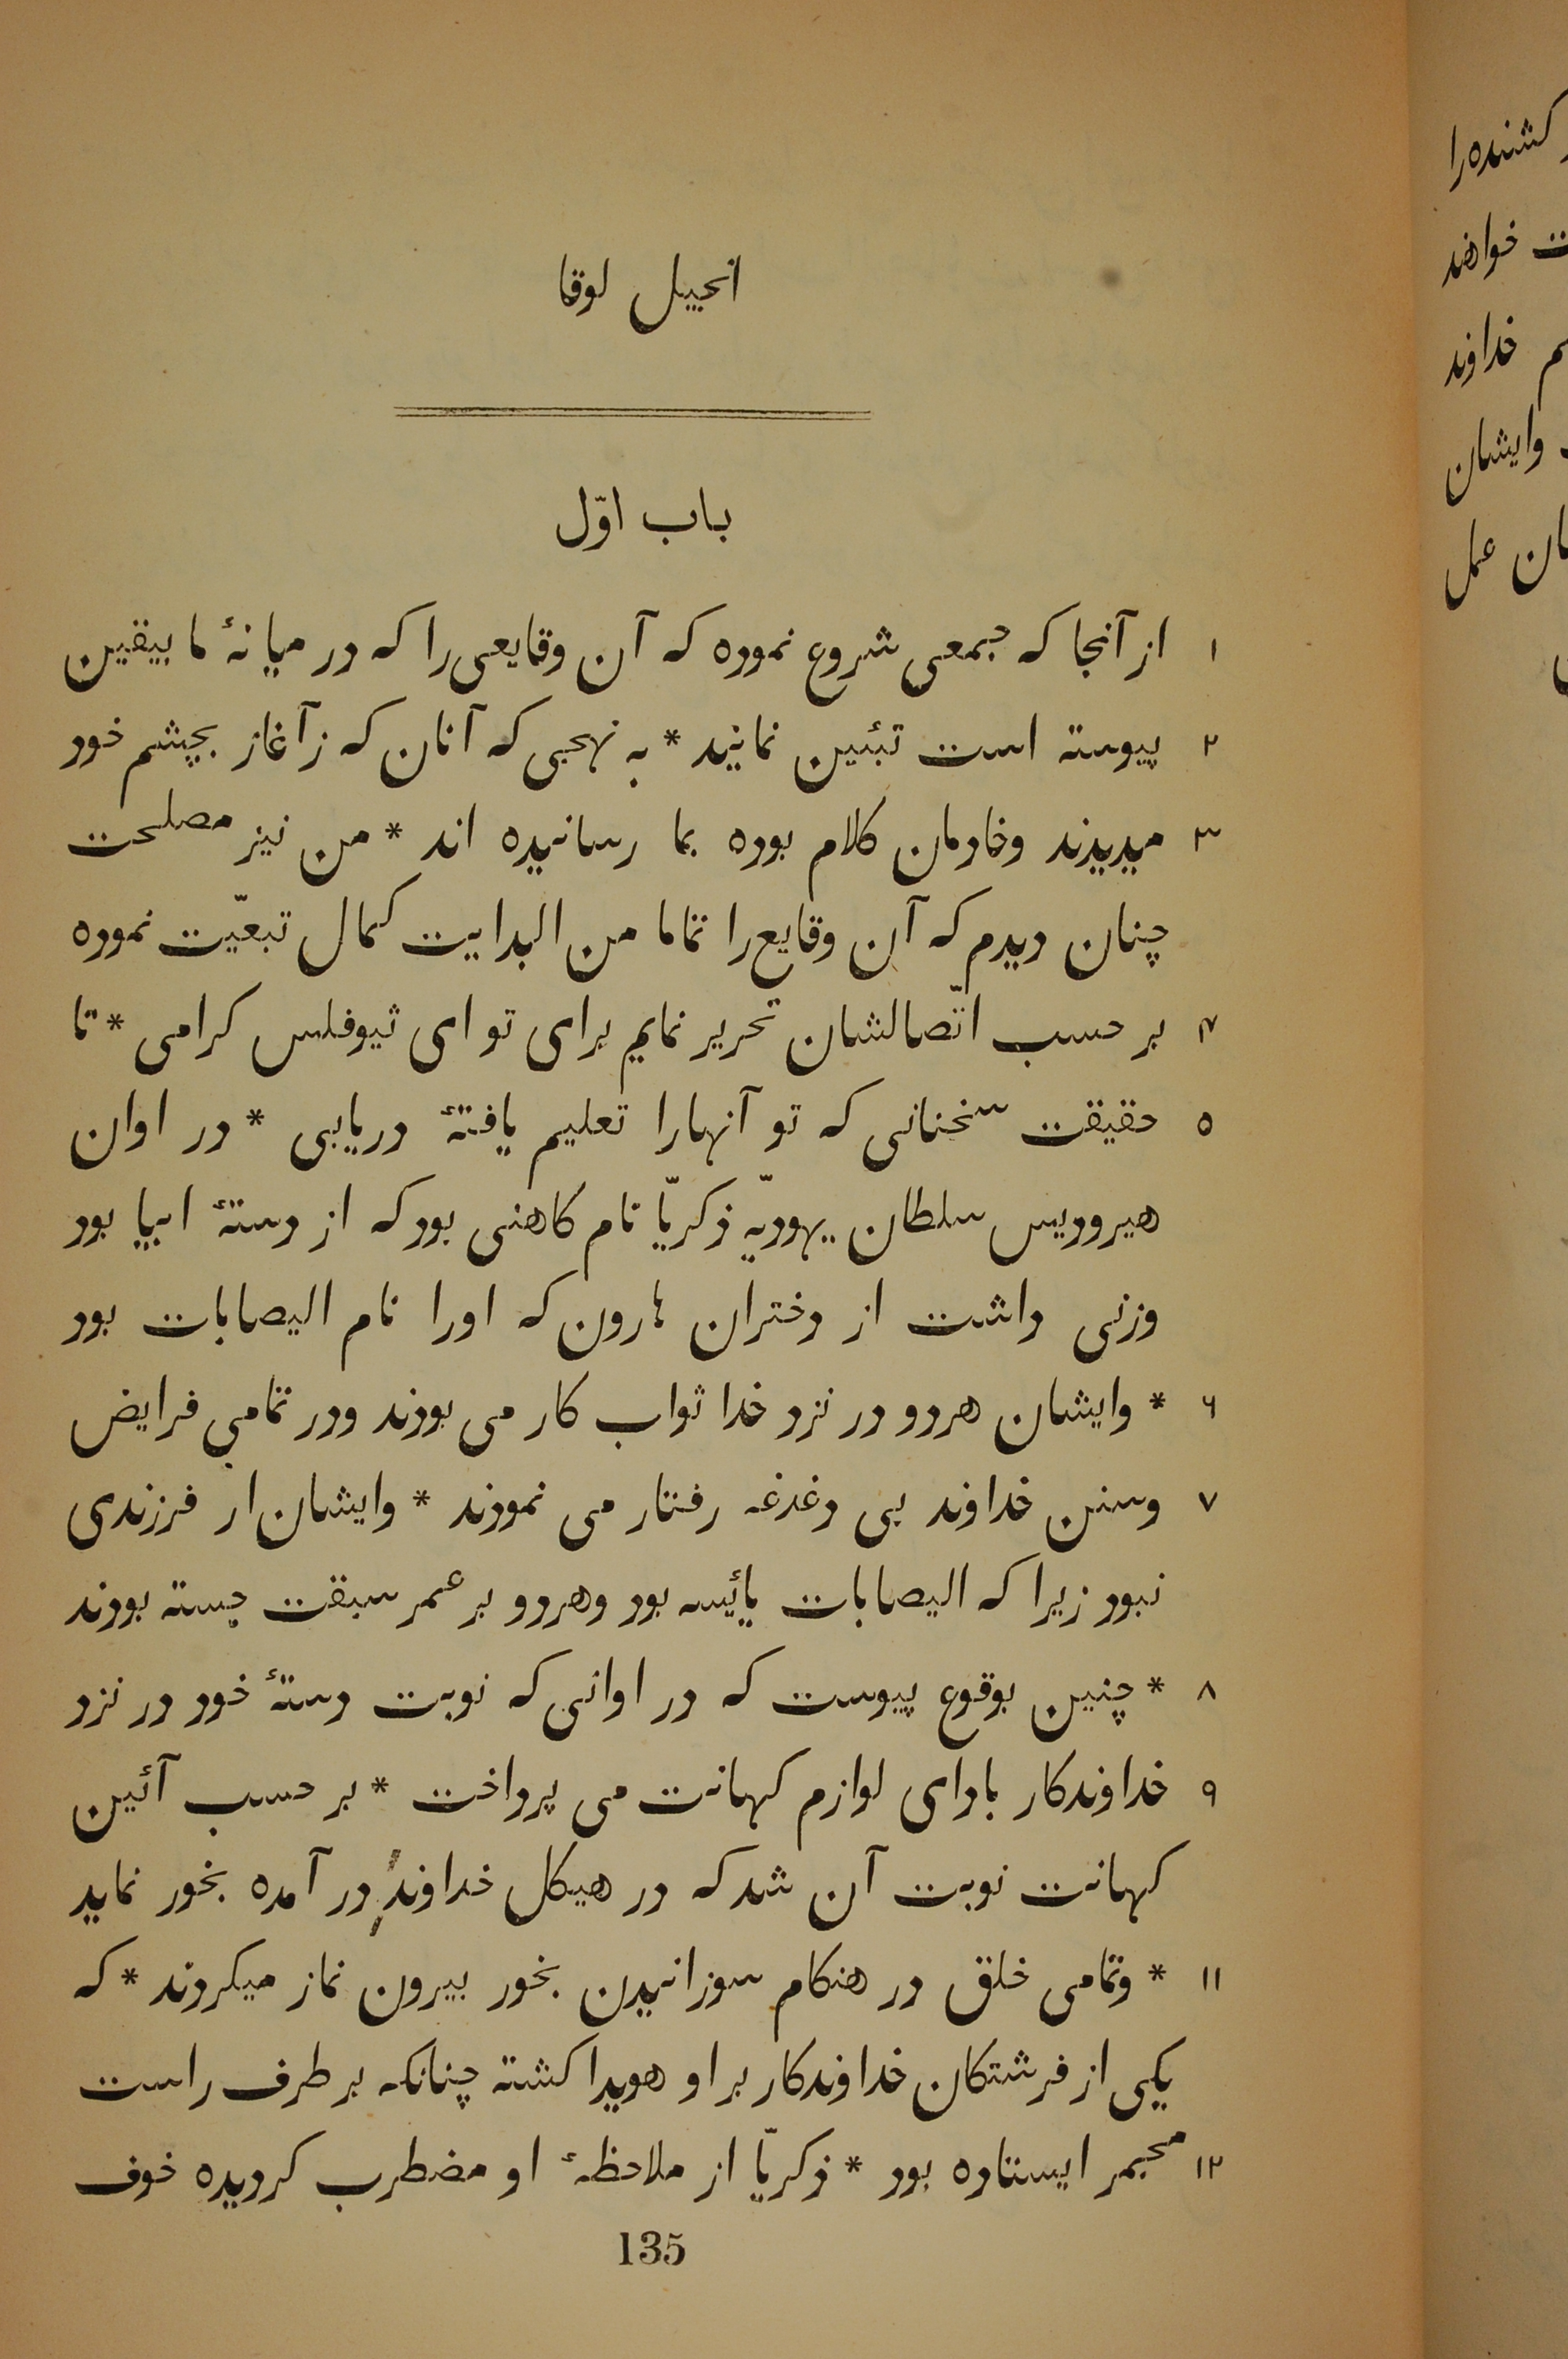 انجیل لوقا
باب اوّل
۱ از آنجا که جمعی شروع نموده که آن وقایعی را که در میانهٔ ما بیقین
۲ پیوسته است تبئین نمایند * به نهجی که آنان که ز آغاز بچشم خود
۳ میدیدند وخادمان کلام بوده بما رسانیده اند * من نیز مصلحت
چنان دیدم که آن وقایع را تماما من البدایت کمال تبعّیت نموده
۴ بر حسب اتّصالشان تحریر نمایم برای تو ای ثیوفلس کرامی * تا
۵ حقیقت سخنانی که تو آنهارا تعلیم یافتهٔ دریابی * در اوان
هیرودیس سلطان یهودیّه ذکریّا نام کاهنی بود که از دستهٔ ابیا بود
وزنی داشت از دختران هارون که اورا نام الیصابات بود
۶ * وایشان هردو در نزد خدا ثواب کار می بودند ودر تمامی فرایض
۷ وسنن خداوند بی دغدغه رفتار می نمودند * وایشان ار فرزندی
نبود زیرا که الیصابات یائیسه بود وهردو بر عمر سبقت جسته بودند
۸ * چنین بوقوع پیوست که در اوانی که نوبت دستهٔ خود در نزد
۹ خداوندکار بادای لوازم کهانت می پرداخت * بر حسب آئین
کهانت نوبت آن شد که در هیکل خداوند در آمده بخور نماید
۱۱ * وتمامی خلق در هنکام سوزانیدن بخور بیرون نماز میکردند * که
یکی از فرشتکان خداوندکار بر او هویدا کشته چنانکه بر طرف راست
۱۲ مجمر ایستاده بود * ذکریّا از ملاحظهٔ او مضطرب کردیده خوف
135
کشنده را
خواهند
خداوند
وایشان
عمل